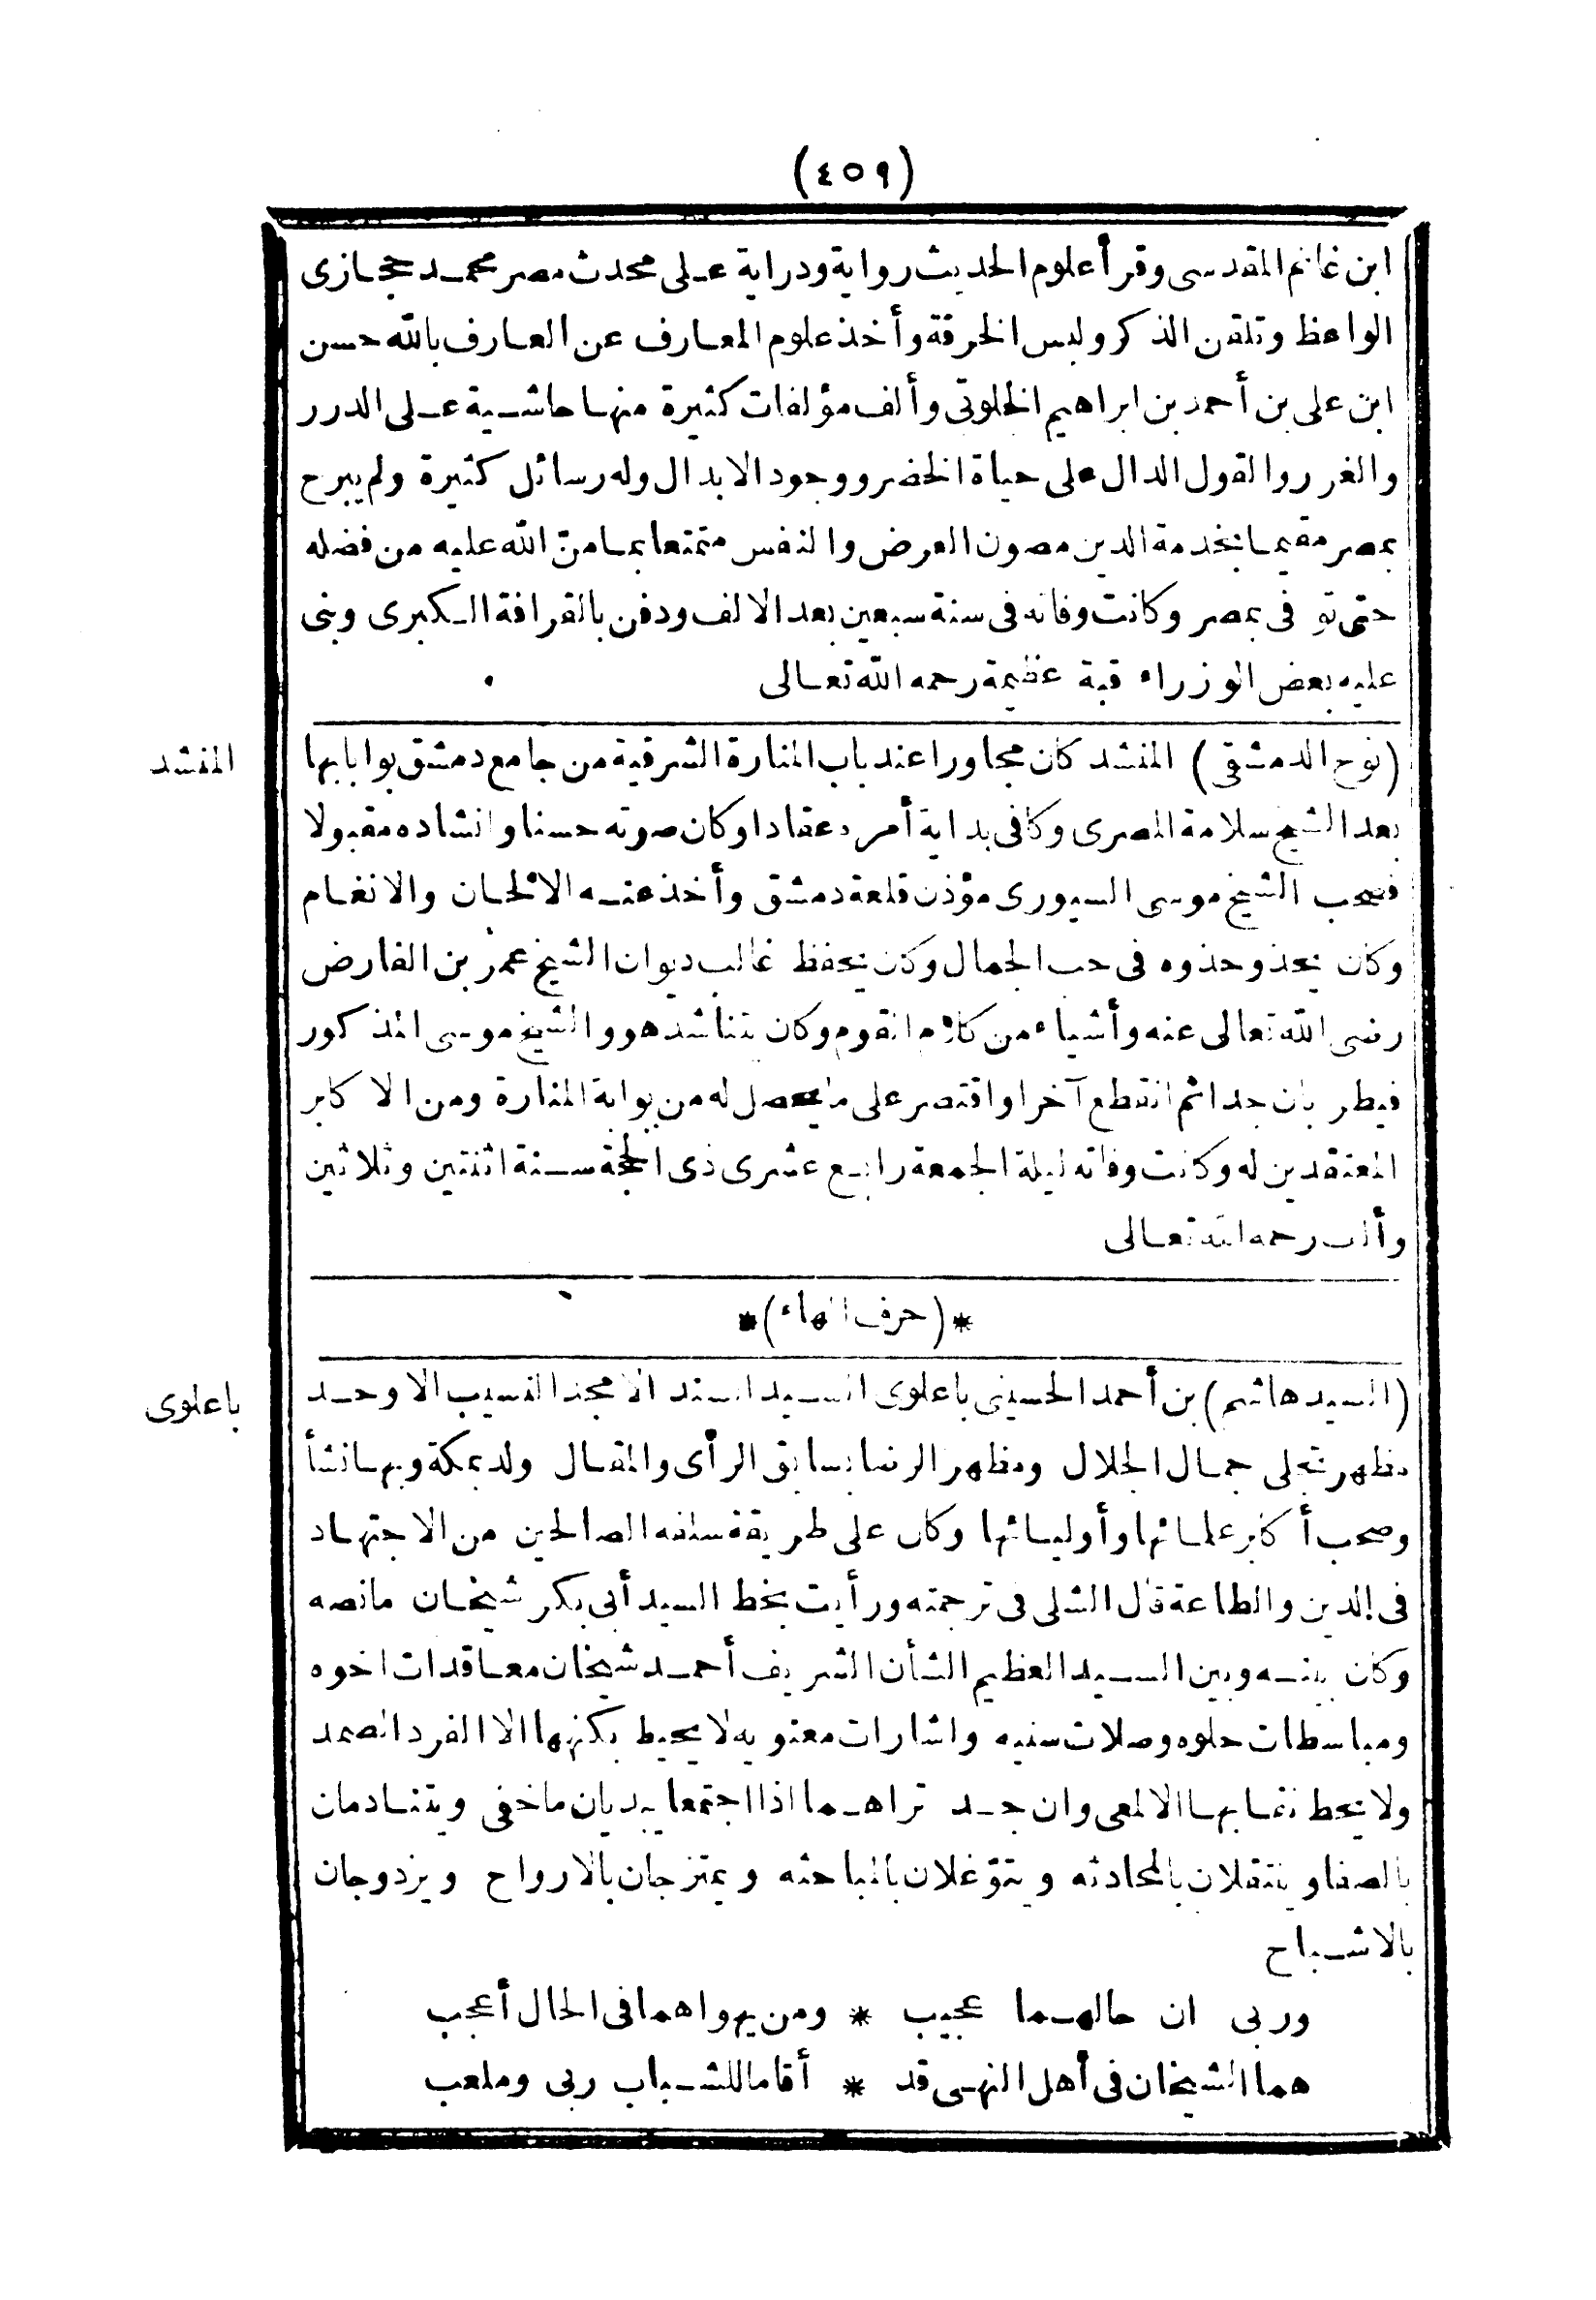 (٤٥٩)
ابن غانم المقدسى وقرأ علوم الحديث رواية ودراية على محدث مصر محمد حجازى
الواعظ وتلقن الذكر ولبس الخرقة وأخذ علوم المعارف عن العارف بالله حسن
ابن على بن أحمد بن ابراهيم الخلوتى وألف مؤلفات كثيرة منها حاشية على الدرر
والغرر والقول الدال على حياة الخضر ووجود الابدال وله رسائل كثيرة ولم يبرح
بمصر مقيما بخدمة الدين مصون العرض والنفس متمتعا بما منّ الله عليه من فضله
حتى توفى بمصر وكانت وفاته فى سنة سبعين بعد الالف ودفن بالقرافة الكبرى وبنى
عليه بعض الوزراء قبة عظيمة رحمه الله تعالى
المنشد
(نوح الدمشقى) المنشد كان مجاورا عند باب المنارة الشرقية من جامع دمشق بوابا بها
بعد الشيخ سلامة المصرى وكافى بداية أمره عقادا وكان صوته حسنا وانشاده مقبولا
فصحب الشيخ موسى السيورى مؤذن قلعة دمشق وأخذ عنه الالحان والانغام
وكان يحذو حذوه فى حب الجمال وكان يحفظ غالب ديوان الشيخ عمر بن الفارض
رضى الله تعالى عنه وأشياء من كلام القوم وكان يتناشد هو والشيخ موسى المذكور
فيطربان جدا ثم انقطع آخرا واقتصر على ما يحصل له من بوابة المنارة ومن الاكابر
المعتقدين له وكانت وفاته ليلة الجمعة رابع عشرى ذى الحجة سنة اثنتين وثلاثين
وألف رحمه الله تعالى
*(حرف الهاء)*
باعلوى
(السيد هاشم) بن أحمد الحسينى باعلوى السيد السند الامجد النسيب الاوحد
مظهر تجلى جمال الجلال ومظهر الرضا بسابق الرأى والمقال ولد بمكة وبها نشأ
وصحب أكابر علمائها وأوليائها وكان على طريقة سلفه الصالحين من الاجتهاد
فى الدين والطاعة قال الشلى فى ترجمته ورأيت بخط السيد أبى بكر شيخان مانصه
وكان بينه وبين السيد العظيم الشأن الشريف أحمد شيخان معاقدات اخوه
ومباسطات حلوه وصلات سنيه واشارات معنويه لا يحيط بكنهها الا الفرد الصمد
ولا يحط نقابها الالمعى وان جد تراهما اذا اجتمعا يبديان ماخفى ويتنادمان
بالصفا وينتقلان بالمحادثه ويتوّغلان بالمباحثه ويمتزجان بالارواح ويزدوجان
بالاشباح
وربى ان حالهما عجيب * ومن يهواهما فى الحال أعجب
هما الشيخان فى أهل النهى قد * أقاما للشباب ربى وملعب